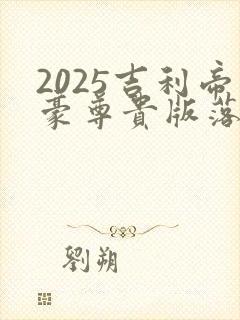 2025吉利帝
豪尊貴版落
劉朔